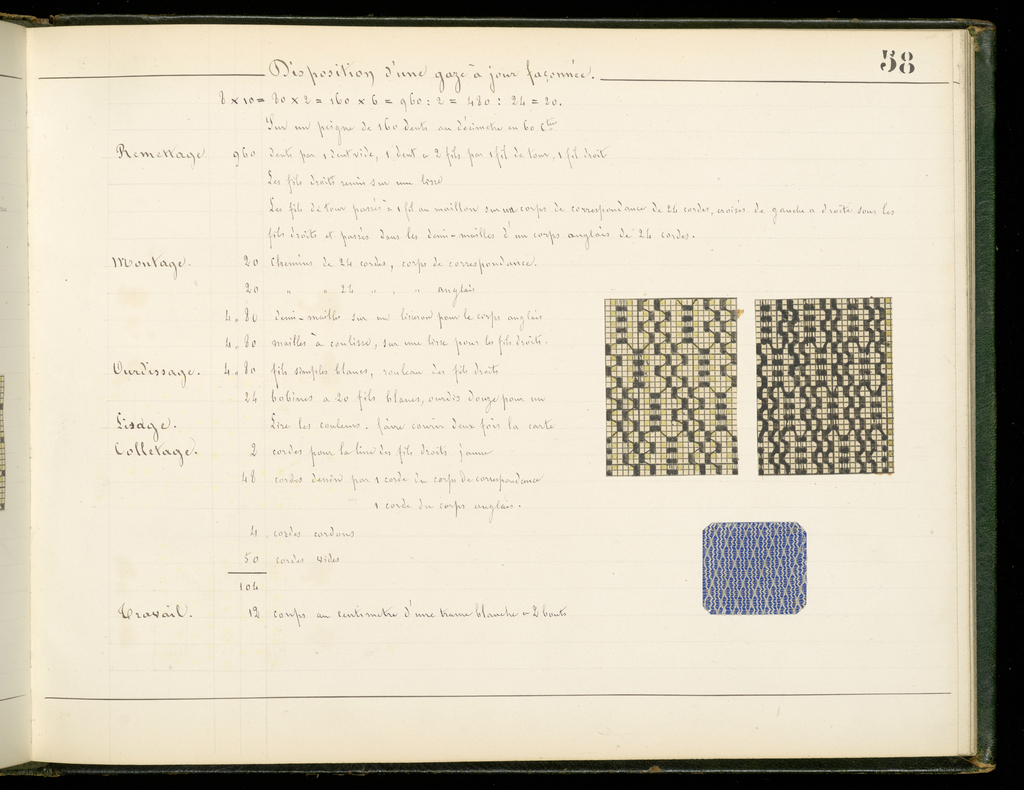 58
Disposition d'une gaze à jour façonnée.
8 x 10 = 80 x 2 = 160 x 6 = 960 : 2 = 480 : 24 = 20.
Sur un peigne de 160 dents au décimetre en 60 Ctes
Remettage 960 dents par 1 dent vide, 1 dent a 2 fils par 1 fil de tour, 1 fil droit
Les fils droits remis sur une lisse
Les fils de tour passés à 1 fil au maillon sur un corps de correspondance de 24 cordes, croisés de gauche a droite sous les
fils droits et passés dans les demi-mailles d'un corps anglais de 24 cordes.
Montage. 20 chemins de 24 cordes, corps de correspondance.
20 " " 24 " , " anglais
4.80 demi-mailles sur un lisseron pour le corps anglais
4.80 mailles à coulisse, sur une lisse pour les fils droits.
Ourdissage. 4.80 fils simples blancs, rouleau des fils droits
24 bobines a 20 fils blancs, ourdis douze pour un
Lisage. Lire les couleurs. faire courir deux fois la carte
Colletage. 2 cordes pour la lisse des fils droits jaune
48 cordes dessin par 1 corde du corps de correspondance
1 corde du corps anglais.
4 cordes cordons
50 cordes vides
104
Travail. 12 coups au centimetre d'une trame blanche a 2 bouts